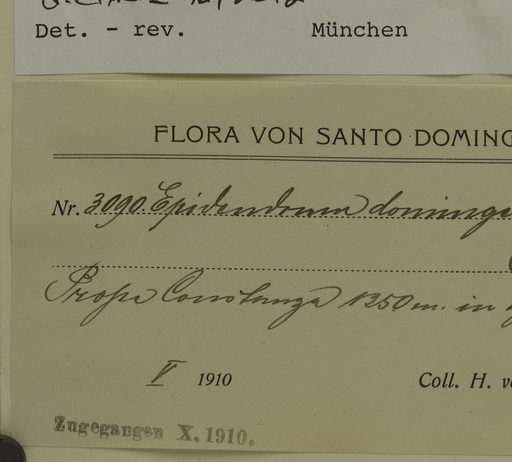 Det. - rev. München
FLORA VON SANTO DOMING
Nr. 3090. Epidendrum dominge
Prope Constanza 1250 m. in
V 1910
Coll. H. v
Zugegangen X. 1910.